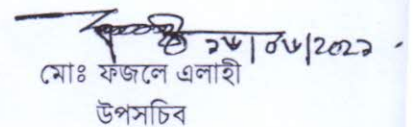 ২৮/০৮/২০২২
মোঃ ফজলে এলাহী
উপসচিব